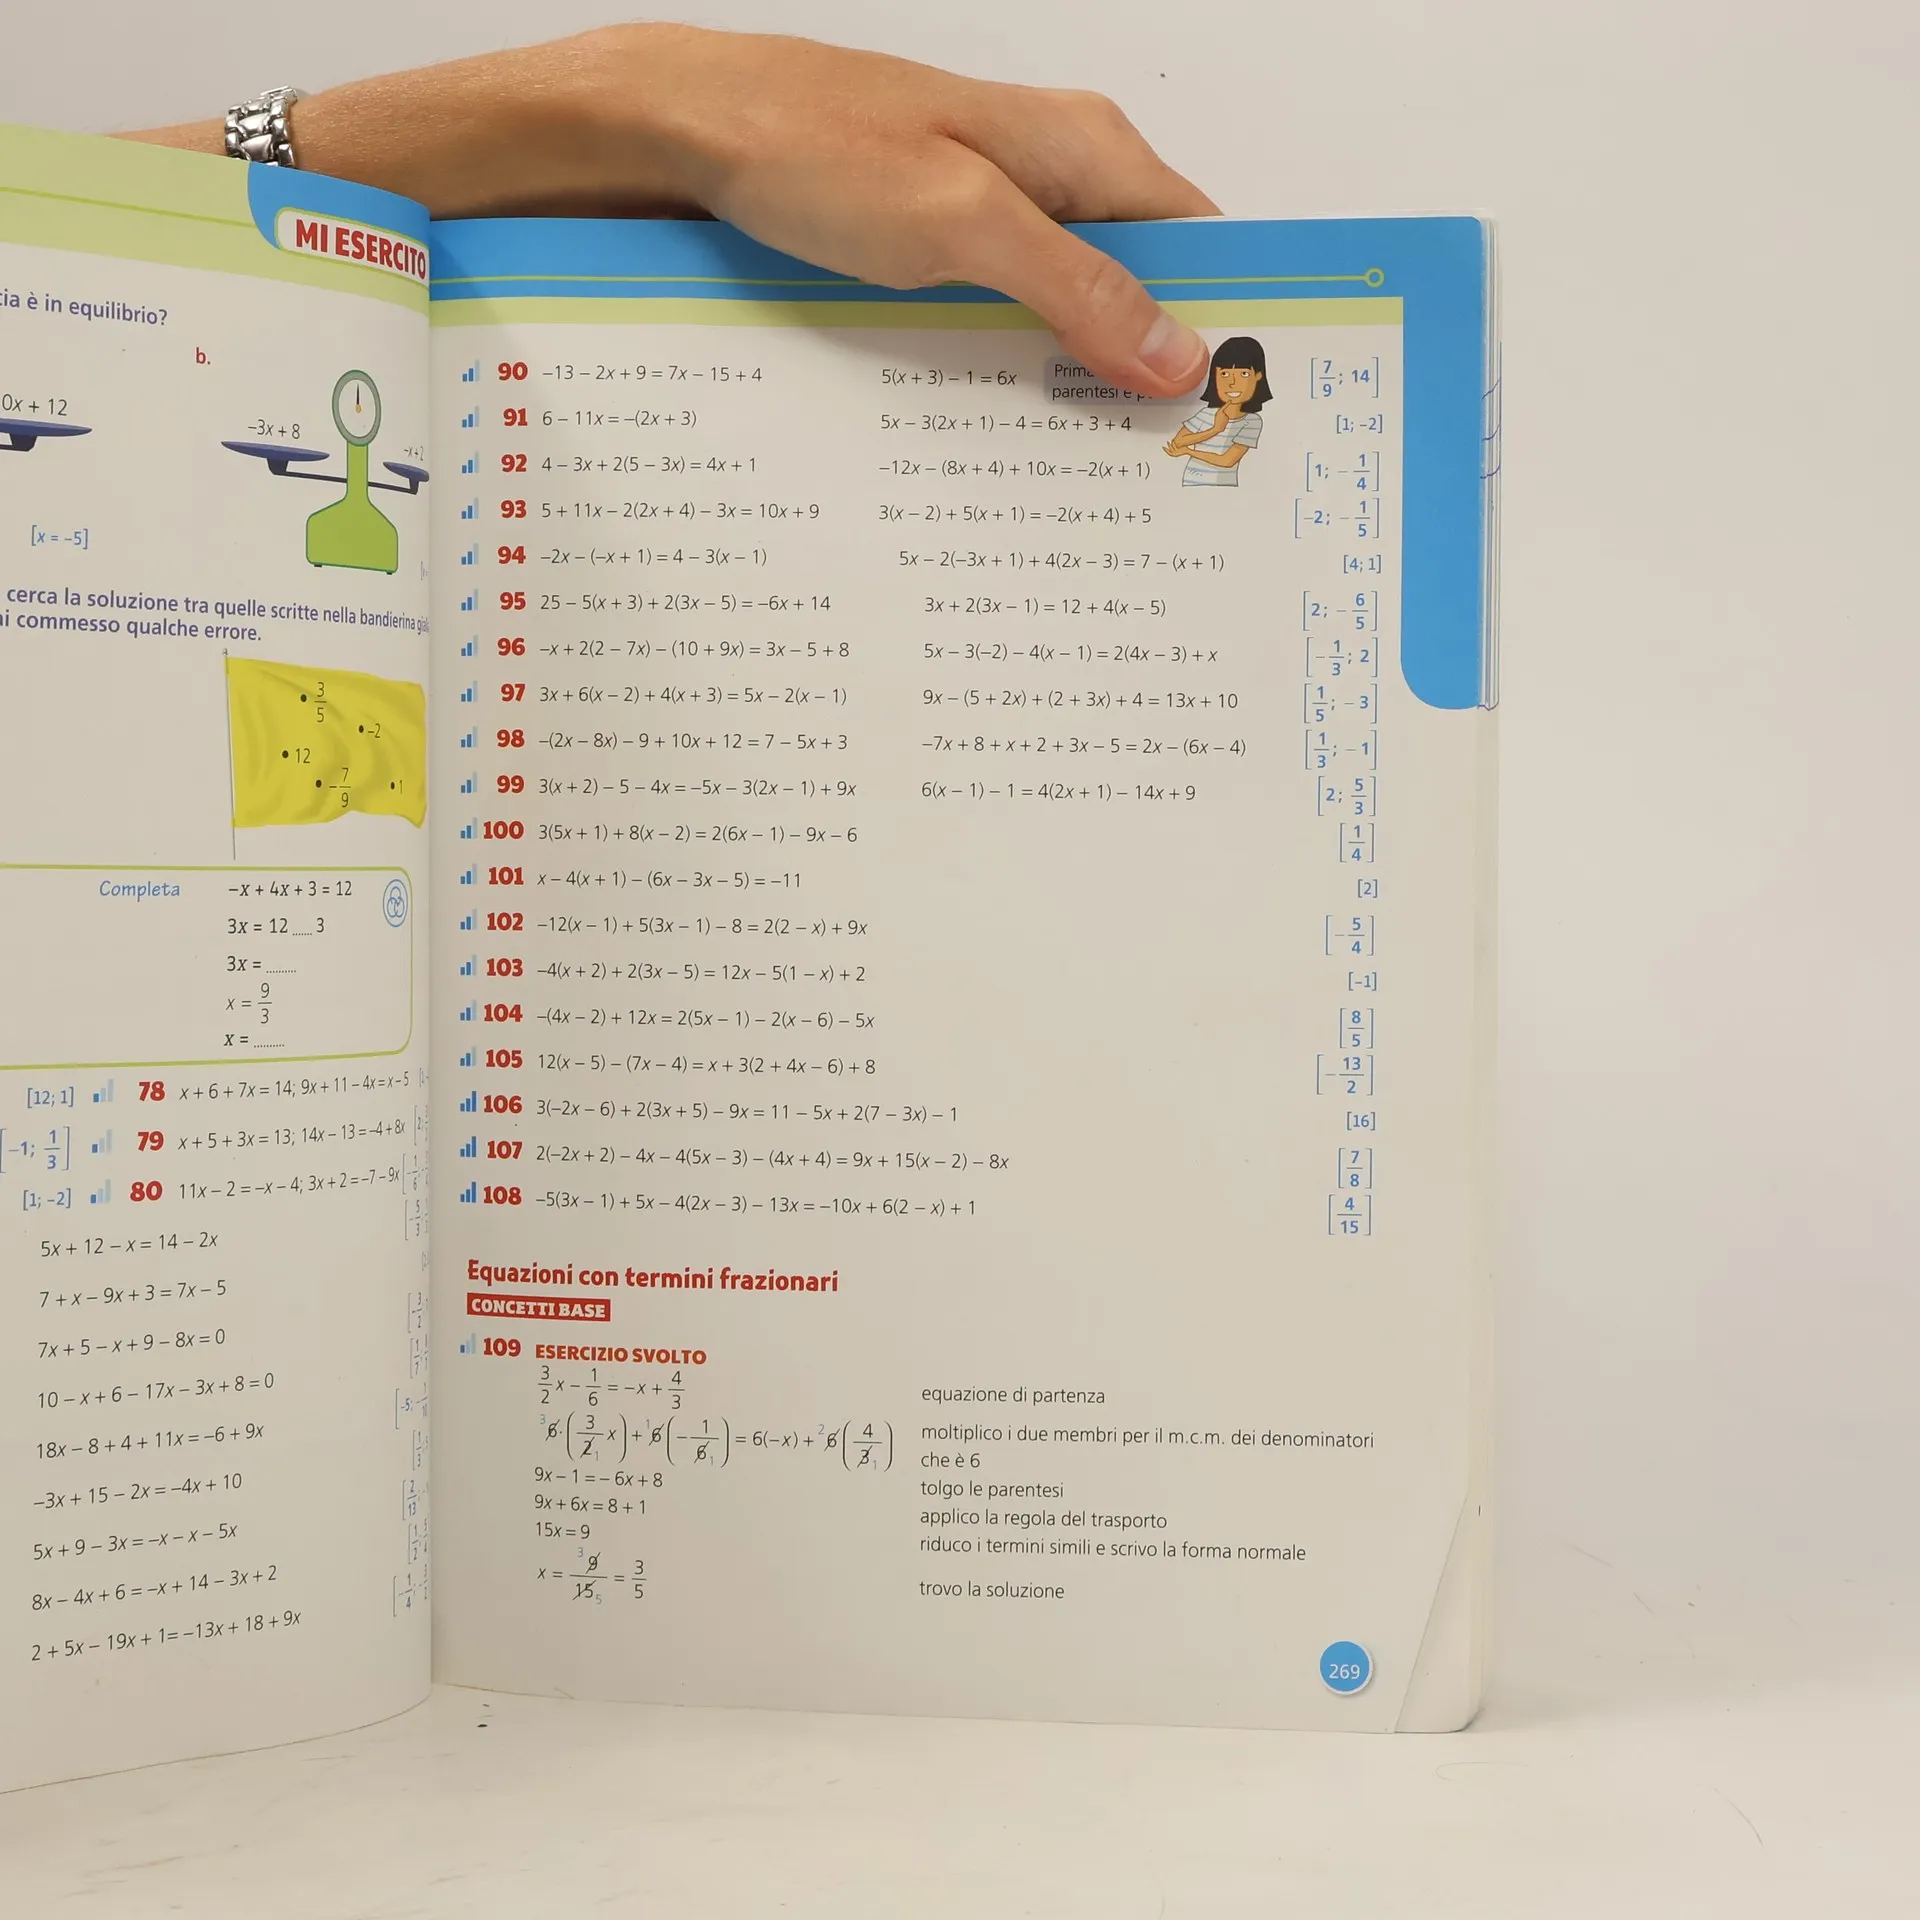 MI ESERCITO
cia è in equilibrio?
b.
0x + 12
–3x + 8
–x + 2
[x = –5]
cerca la soluzione tra quelle scritte nella bandierina
ai commesso qualche errore.
• 3/5
• –2
• 12
• –7/9
• 1
Completa –x + 4x + 3 = 12
3x = 12 ...... 3
3x = .........
x = 9/3
x = .........
[12; 1] 78 x + 6 + 7x = 14; 9x + 11 – 4x = x – 5
[–1; 1/3] 79 x + 5 + 3x = 13; 14x – 13 = –4 + 8x
[1; –2] 80 11x – 2 = –x – 4; 3x + 2 = –7 – 9x
5x + 12 – x = 14 – 2x
7 + x – 9x + 3 = 7x – 5
7x + 5 – x + 9 – 8x = 0
10 – x + 6 – 17x – 3x + 8 = 0
18x – 8 + 4 + 11x = –6 + 9x
–3x + 15 – 2x = –4x + 10
5x + 9 – 3x = –x – x – 5x
8x – 4x + 6 = –x + 14 – 3x + 2
2 + 5x – 19x + 1 = –13x + 18 + 9x
Prima
parentesi e
90 –13 – 2x + 9 = 7x – 15 + 4 5(x + 3) – 1 = 6x [7/9; 14]
91 6 – 11x = –(2x + 3) 5x – 3(2x + 1) – 4 = 6x + 3 + 4 [1; –2]
92 4 – 3x + 2(5 – 3x) = 4x + 1 –12x – (8x + 4) + 10x = –2(x + 1) [1; –1/4]
93 5 + 11x – 2(2x + 4) – 3x = 10x + 9 3(x – 2) + 5(x + 1) = –2(x + 4) + 5 [–2; –1/5]
94 –2x – (–x + 1) = 4 – 3(x – 1) 5x – 2(–3x + 1) + 4(2x – 3) = 7 – (x + 1) [4; 1]
95 25 – 5(x + 3) + 2(3x – 5) = –6x + 14 3x + 2(3x – 1) = 12 + 4(x – 5) [2; –6/5]
96 –x + 2(2 – 7x) – (10 + 9x) = 3x – 5 + 8 5x – 3(–2) – 4(x – 1) = 2(4x – 3) + x [–1/3; 2]
97 3x + 6(x – 2) + 4(x + 3) = 5x – 2(x – 1) 9x – (5 + 2x) + (2 + 3x) + 4 = 13x + 10 [1/5; –3]
98 –(2x – 8x) – 9 + 10x + 12 = 7 – 5x + 3 –7x + 8 + x + 2 + 3x – 5 = 2x – (6x – 4) [1/3; –1]
99 3(x + 2) – 5 – 4x = –5x – 3(2x – 1) + 9x 6(x – 1) – 1 = 4(2x + 1) – 14x + 9 [2; 5/3]
100 3(5x + 1) + 8(x – 2) = 2(6x – 1) – 9x – 6 [1/4]
101 x – 4(x + 1) – (6x – 3x – 5) = –11 [2]
102 –12(x – 1) + 5(3x – 1) – 8 = 2(2 – x) + 9x [–5/4]
103 –4(x + 2) + 2(3x – 5) = 12x – 5(1 – x) + 2 [–1]
104 –(4x – 2) + 12x = 2(5x – 1) – 2(x – 6) – 5x [8/5]
105 12(x – 5) – (7x – 4) = x + 3(2 + 4x – 6) + 8 [–13/2]
106 3(–2x – 6) + 2(3x + 5) – 9x = 11 – 5x + 2(7 – 3x) – 1 [16]
107 2(–2x + 2) – 4x – 4(5x – 3) – (4x + 4) = 9x + 15(x – 2) – 8x [7/8]
108 –5(3x – 1) + 5x – 4(2x – 3) – 13x = –10x + 6(2 – x) + 1 [4/15]
Equazioni con termini frazionari
CONCETTI BASE
109 ESERCIZIO SVOLTO
3/2 x – 1/6 = –x + 4/3 equazione di partenza
³6 · (3/2₁ x) + ¹6 (–1/6₁) = 6(–x) + ²6 (4/3₁) moltiplico i due membri per il m.c.m. dei denominatori
che è 6
9x – 1 = – 6x + 8 tolgo le parentesi
9x + 6x = 8 + 1 applico la regola del trasporto
15x = 9 riduco i termini simili e scrivo la forma normale
x = ³9/15₅ = 3/5 trovo la soluzione
269